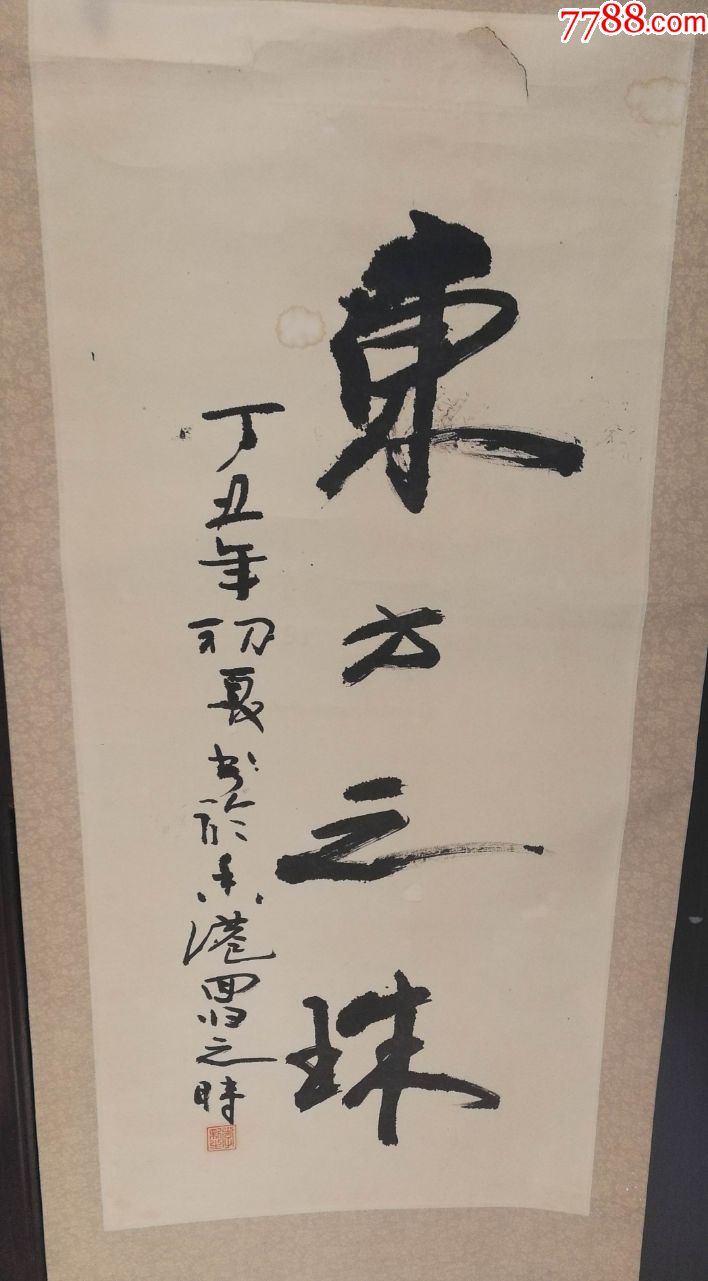 7788.com
東方之珠
丁丑年初夏書於香港回归之時